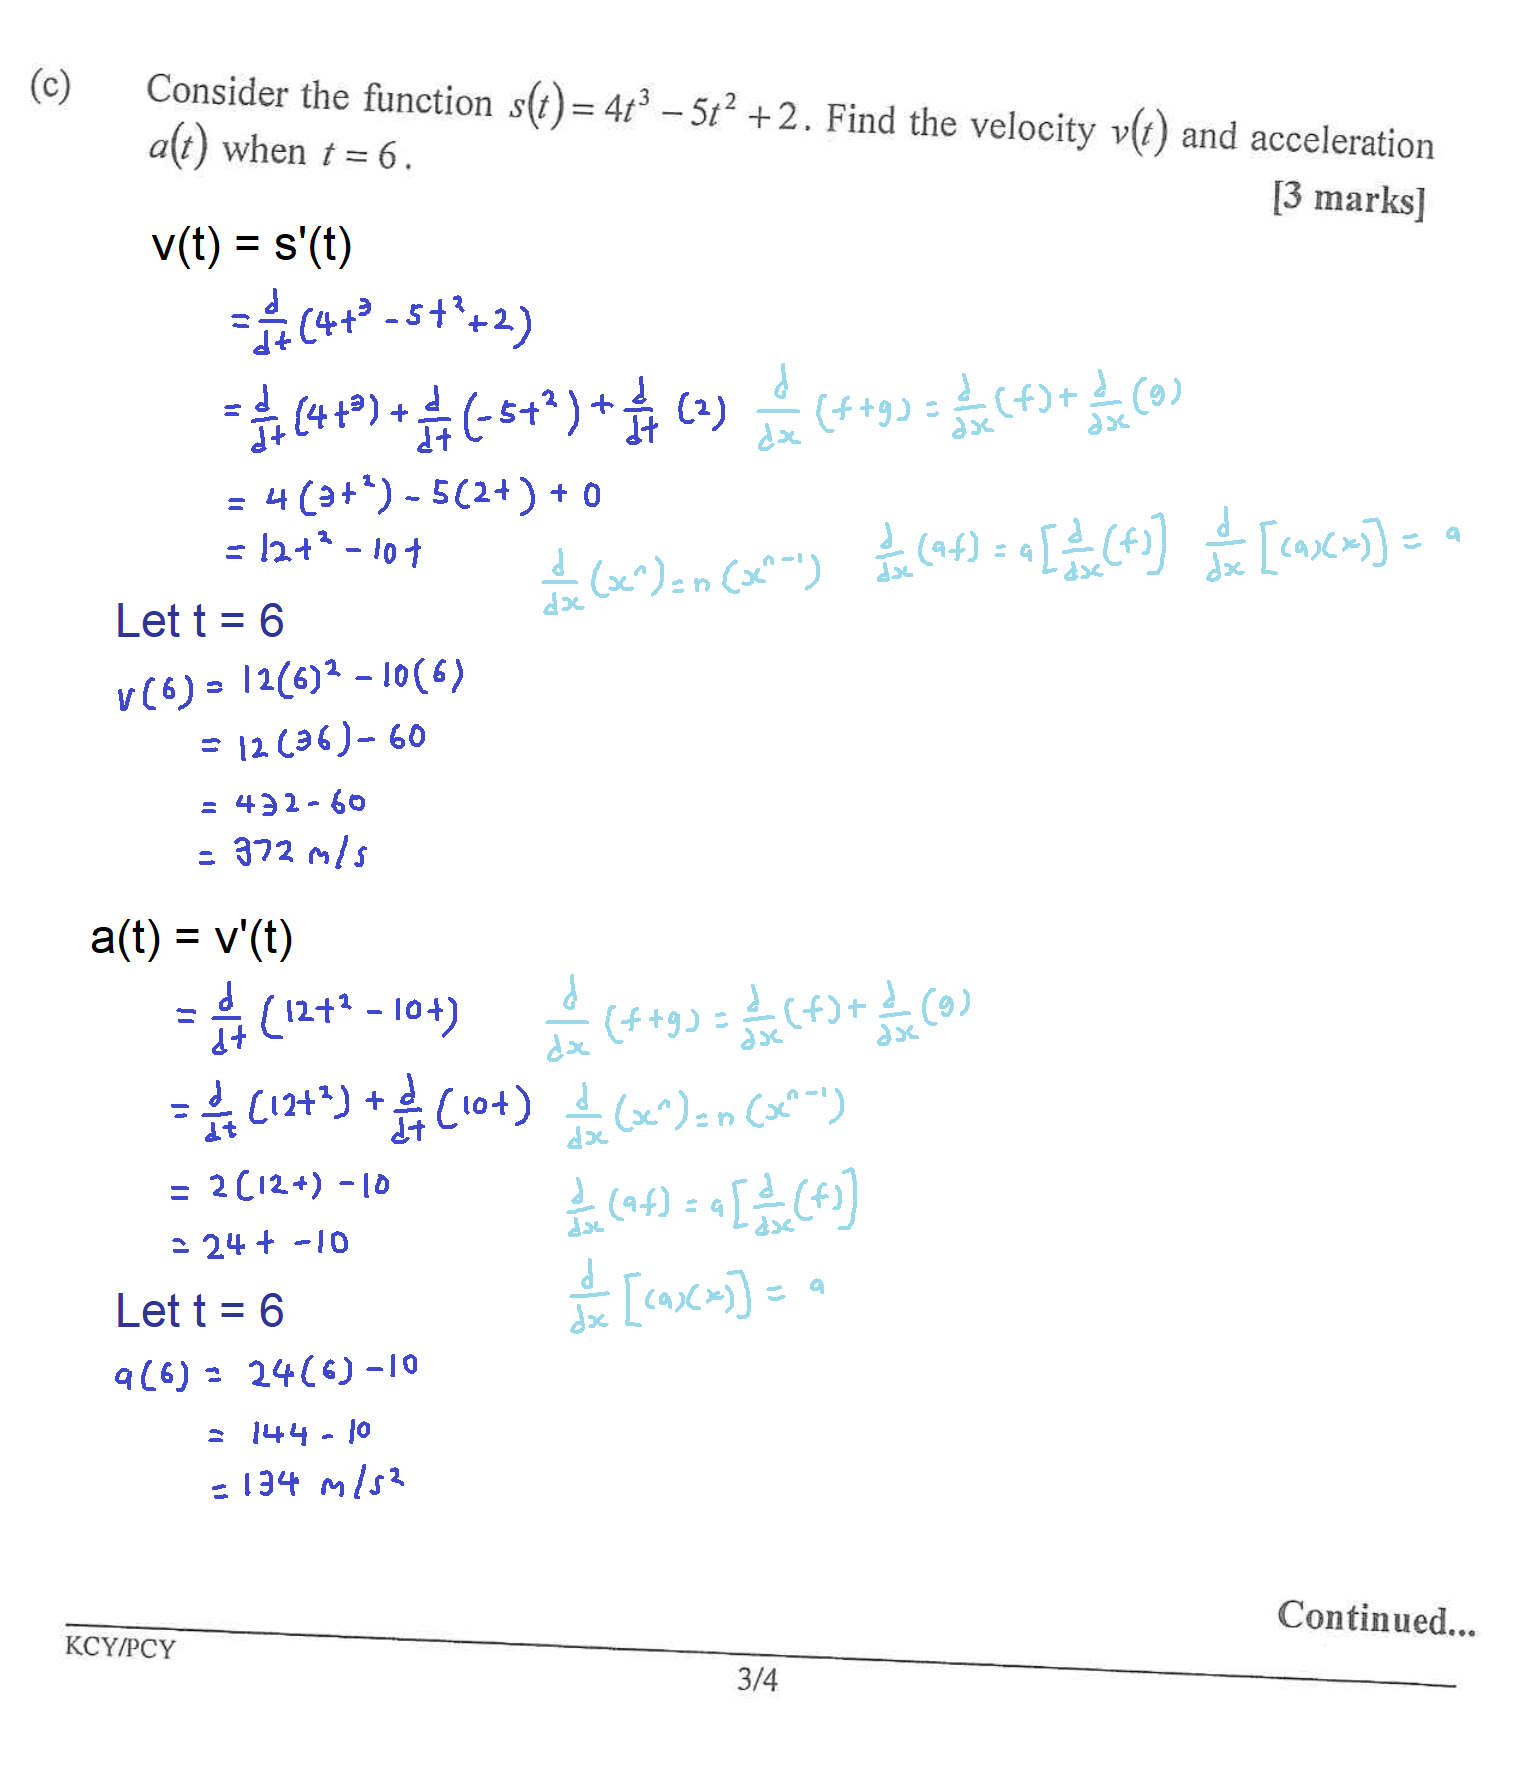 (c) Consider the function s(t) = 4t³ − 5t² + 2. Find the velocity v(t) and acceleration
a(t) when t = 6.
[3 marks]
v(t) = s'(t)
= d/dt (4t³ - 5t² + 2)
= d/dt (4t³) + d/dt (-5t²) + d/dt (2) d/dx (f+g) = d/dx (f) + d/dx (g)
= 4(3t²) - 5(2t) + 0
= 12t² - 10t
d/dx (xⁿ) = n(xⁿ⁻¹) d/dx (af) = a[d/dx (f)] d/dx [(a)(x)] = a
Let t = 6
v(6) = 12(6)² - 10(6)
= 12(36) - 60
= 432 - 60
= 372 m/s
a(t) = v'(t)
= d/dt (12t² - 10t) d/dx (f+g) = d/dx (f) + d/dx (g)
= d/dt (12t²) + d/dt (10t) d/dx (xⁿ) = n(xⁿ⁻¹)
= 2(12t) - 10 d/dx (af) = a[d/dx (f)]
= 24t - 10
d/dx [(a)(x)] = a
Let t = 6
a(6) = 24(6) - 10
= 144 - 10
= 134 m/s²
Continued...
KCY/PCY
3/4